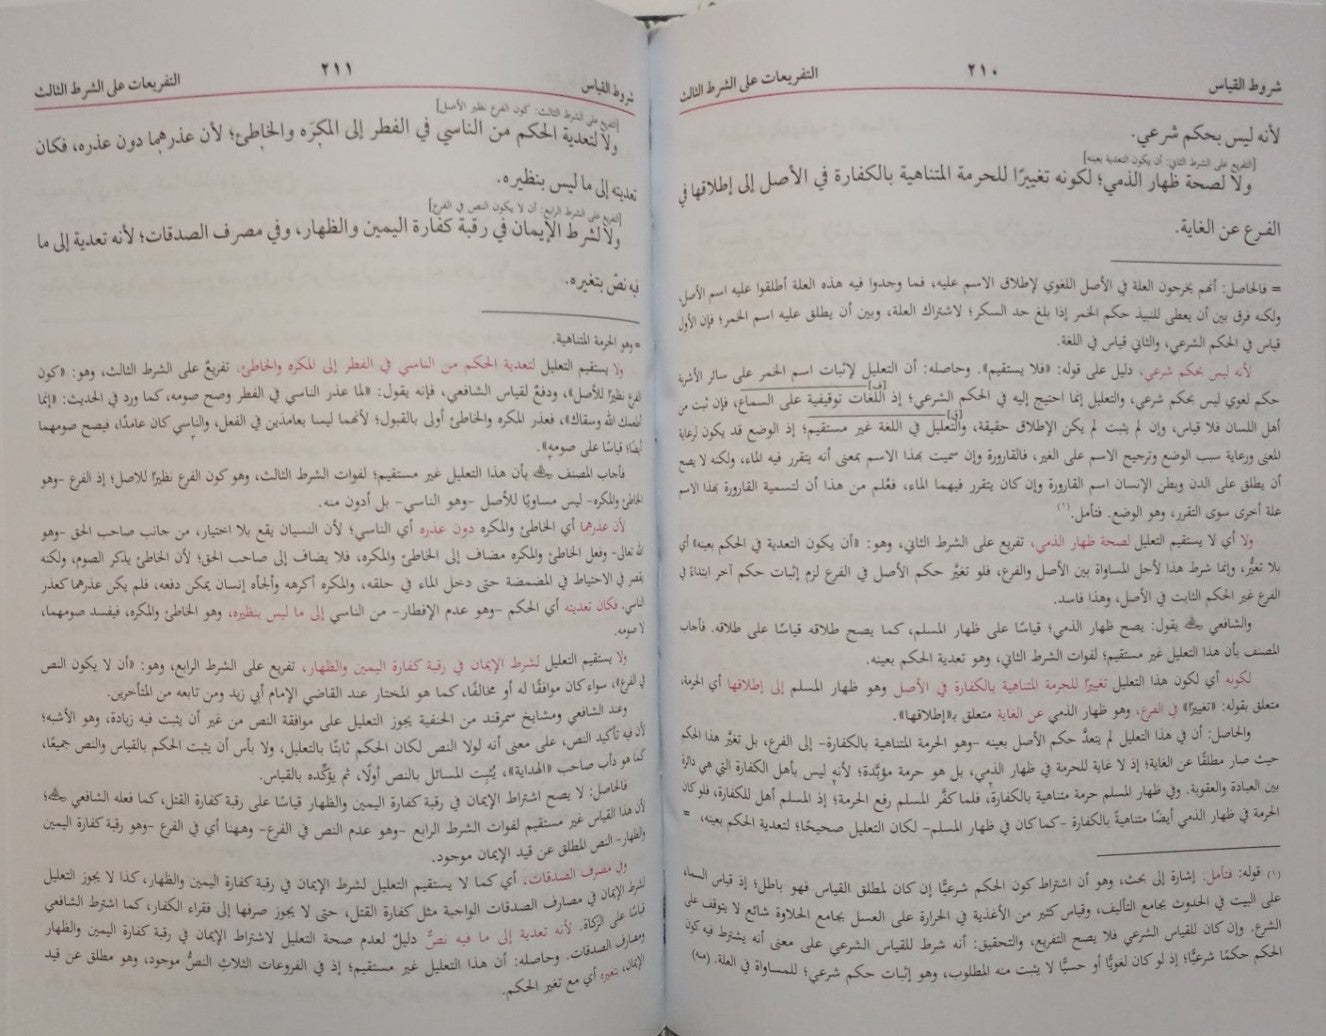 شروط القياس
٢١٠
التفريعات على الشرط الثالث
لأنه ليس بحكم شرعي.
[التفريع على الشرط الثاني: أن يكون التعدية بعينه]
ولا لصحة ظهار الذمي؛ لكونه تغييرًا للحرمة المتناهية بالكفارة في الأصل إلى إطلاقها في
الفرع عن الغاية.
= فالحاصل: أنهم يخرجون العلة في الأصل اللغوي لإطلاق الاسم عليه، فما وجدوا فيه هذه العلة أطلقوا عليه اسم الأصل
ولكنه فرق بين أن يعطى للنبيذ حكم الخمر إذا بلغ حد السكر؛ لاشتراك العلة، وبين أن يطلق عليه اسم الخمر؛ فإن الأول
قياس في الحكم الشرعي، والثاني قياس في اللغة.
لأنه ليس بحكم شرعي، دليل على قوله: «فلا يستقيم». وحاصله: أن التعليل لإثبات اسم الخمر على سائر الأشربة
حكم لغوي ليس بحكم شرعي، والتعليل إنما احتيج إليه في الحكم الشرعي؛ إذ اللغات توقيفية على السماع، فإن ثبت من
أهل اللسان فلا قياس، وإن لم يثبت لم يكن الإطلاق حقيقة، والتعليل في اللغة غير مستقيم؛ إذ الوضع قد يكون لرعاية
المعنى ورعاية سبب الوضع وترجيح الاسم على الغير، فالقارورة وإن سميت بهذا الاسم بمعنى أنه يتقرر فيه الماء، ولكنه لا يصح
أن يطلق على الدن وبطن الإنسان اسم القارورة وإن كان يتقرر فيهما الماء، فعُلم من هذا أن لتسمية القارورة بهذا الاسم
علة أخرى سوى التقرر، وهو الوضع. فتأمل.(١)
ولا أي لا يستقيم التعليل لصحة ظهار الذمي، تفريع على الشرط الثاني، وهو: «أن يكون التعدية في الحكم بعينه» أي
بلا تغيُّر، وإنما شرط هذا لأجل المساواة بين الأصل والفرع، فلو تغيَّر حكم الأصل في الفرع لزم إثبات حكم آخر ابتداءً في
الفرع غير الحكم الثابت في الأصل، وهذا فاسد.
والشافعي يقول: يصح ظهار الذمي؛ قياسًا على ظهار المسلم، كما يصح طلاقه قياسًا على طلاقه. فأجاب
المصنف بأن هذا التعليل غير مستقيم؛ لفوات الشرط الثاني، وهو تعدية الحكم بعينه.
لكونه أي لكون هذا التعليل تغييرًا للحرمة المتناهية بالكفارة في الأصل وهو ظهار المسلم إلى إطلاقها أي الحرمة،
متعلق بقوله: «تغييرًا» في الفرع، وهو ظهار الذمي عن الغاية متعلق بـ«إطلاقها».
والحاصل: أن في هذا التعليل لم يتعدَّ حكم الأصل بعينه -وهو الحرمة المتناهية بالكفارة- إلى الفرع، بل تغيَّر هذا الحكم
حيث صار مطلقًا عن الغاية؛ إذ لا غاية للحرمة في ظهار الذمي، بل هو حرمة مؤبَّدة؛ لأنه ليس بأهل الكفارة التي هي دائرة
بين العبادة والعقوبة. وفي ظهار المسلم حرمة متناهية بالكفارة، فلما كفَّر المسلم رفع الحرمة؛ إذ المسلم أهل للكفارة، فلو كان
الحرمة في ظهار الذمي أيضًا متناهيةً بالكفارة -كما كان في ظهار المسلم- لكان التعليل صحيحًا؛ لتعدية الحكم بعينه، =
(١) قوله: فتأمل: إشارة إلى بحث، وهو أن اشتراط كون الحكم شرعيًّا إن كان لمطلق القياس فهو باطل؛ إذ قياس السماء
على البيت في الحدوث بجامع التأليف، وقياس كثير من الأغذية في الحرارة على العسل بجامع الحلاوة شائع لا يتوقف على
الشرع. وإن كان للقياس الشرعي فلا يصح التفريع، والتحقيق: أنه شرط للقياس الشرعي على معنى أنه يشترط فيه كون
الحكم حكمًا شرعيًّا؛ إذ لو كان لغويًّا أو حسيًّا لا يثبت منه المطلوب، وهو إثبات حكم شرعي؛ للمساواة في العلة. (منه)
شروط القياس
٢١١
التفريعات على الشرط الثالث
[التفريع على الشرط الثالث: كون الفرع نظير الأصل]
ولا لتعدية الحكم من الناسي في الفطر إلى المكرَه والخاطئ؛ لأن عذرهما دون عذره، فكان
تعديته إلى ما ليس بنظيره.
[التفريع على الشرط الرابع: أن لا يكون النص في الفرع]
ولا لشرط الإيمان في رقبة كفارة اليمين والظهار، وفي مصرف الصدقات؛ لأنه تعدية إلى ما
فيه نصّ بتغيره.
= وهو الحرمة المتناهية.
ولا يستقيم التعليل لتعدية الحكم من الناسي في الفطر إلى المكره والخاطئ، تفريعٌ على الشرط الثالث، وهو: «كون
الفرع نظيرًا للأصل»، ودفعٌ لقياس الشافعي، فإنه يقول: «لما عذر الناسي في الفطر وصح صومه، كما ورد في الحديث: «إنما
أطعمك الله وسقاك»، فعذر المكره والخاطئ أولى بالقبول؛ لأنهما ليسا بعامدَين في الفعل، والناسي كان عامدًا، فيصح صومهما
أيضًا؛ قياسًا على صومه».
فأجاب المصنف بأن هذا التعليل غير مستقيم؛ لفوات الشرط الثالث، وهو كون الفرع نظيرًا للأصل؛ إذ الفرع -وهو
الخاطئ والمكره- ليس مساويًا للأصل -وهو الناسي- بل أدون منه.
لأن عذرهما أي الخاطئ والمكره دون عذره أي الناسي؛ لأن النسيان يقع بلا اختيار، من جانب صاحب الحق -وهو
الله تعالى- وفعل الخاطئ والمكره مضاف إلى الخاطئ والمكره، فلا يضاف إلى صاحب الحق؛ لأن الخاطئ يذكر الصوم، ولكنه
يقصر في الاحتياط في المضمضة حتى دخل الماء في حلقه، والمكره أكرهه وألجأه إنسان يمكن دفعه، فلم يكن عذرهما كعذر
الناسي. فكان تعديته أي الحكم -وهو عدم الإفطار- من الناسي إلى ما ليس بنظيره، وهو الخاطئ والمكره، فيفسد صومهما،
لا صومه.
ولا يستقيم التعليل لشرط الإيمان في رقبة كفارة اليمين والظهار، تفريع على الشرط الرابع، وهو: «أن لا يكون النص
في الفرع»، سواء كان موافقًا له أو مخالفًا، كما هو المختار عند القاضي الإمام أبي زيد ومن تابعه من المتأخرين.
وعند الشافعي ومشايخ سمرقند من الحنفية يجوز التعليل على موافقة النص من غير أن يثبت فيه زيادة، وهو الأشبه؛
لأن فيه تأكيد النص، على معنى أنه لولا النص لكان الحكم ثابتًا بالتعليل، ولا بأس أن يثبت الحكم بالقياس والنص جميعًا،
كما هو دأب صاحب «الهداية»، يُثبت المسائل بالنص أولًا، ثم يؤكّده بالقياس.
فالحاصل: لا يصح اشتراط الإيمان في رقبة كفارة اليمين والظهار قياسًا على رقبة كفارة القتل، كما فعله الشافعي؛
لأن هذا القياس غير مستقيم لفوات الشرط الرابع -وهو عدم النص في الفرع- وههنا أي في الفرع -وهو رقبة كفارة اليمين
والظهار- النص المطلق عن قيد الإيمان موجود.
وفي مصرف الصدقات، أي كما لا يستقيم التعليل لشرط الإيمان في رقبة كفارة اليمين والظهار، كذا لا يجوز التعليل
لشرط الإيمان في مصارف الصدقات الواجبة مثل كفارة القتل، حتى لا يجوز صرفها إلى فقراء الكفار، كما اشترط الشافعي
قياسًا على الزكاة. لأنه تعدية إلى ما فيه نصٌّ دليلٌ لعدم صحة التعليل لاشتراط الإيمان في رقبة كفارة اليمين والظهار
ومصارف الصدقات. وحاصله: أن هذا التعليل غير مستقيم؛ إذ في الفروعات الثلاث النصُّ موجود، وهو مطلق عن قيد
الإيمان، بتغيره أي مع تغير الحكم.